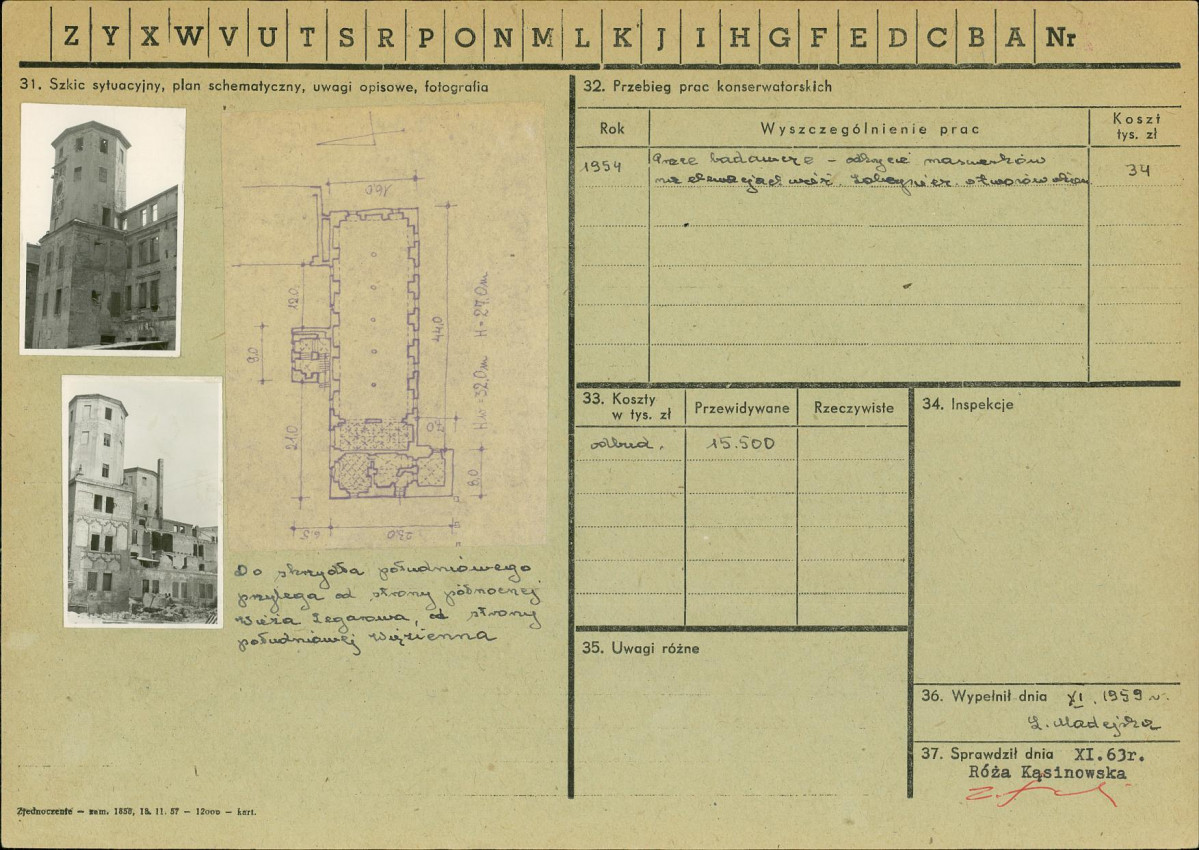 Z Y X W V U T S R P O N M L K J I H G F E D C B A Nr
31. Szkic sytuacyjny, plan schematyczny, uwagi opisowe, fotografia
16.0
12.0
9.0
21.0
44.0
7.0
8.0
6.5
23.0
Hw=32.0m H=27.0m
Do skrzydła południowego
przylega od strony północnej
Wieża Zegarowa, od strony
południowej Więzienna
32. Przebieg prac konserwatorskich
Rok Wyszczególnienie prac Koszt tys. zł
1954 Prace badawcze – odkrycie maswerków 34
na elewacjach wież. Zabezpiecz. otworów okien
33. Koszty w tys. zł Przewidywane Rzeczywiste
odbud. 15.500
34. Inspekcje
35. Uwagi różne
36. Wypełnił dnia XI. 1959 r.
Z. Madejska
37. Sprawdził dnia XI.63r.
Róża Kąsinowska
Zjednoczenie – zam. 1858, 18. 11. 57 – 12000 – kart.